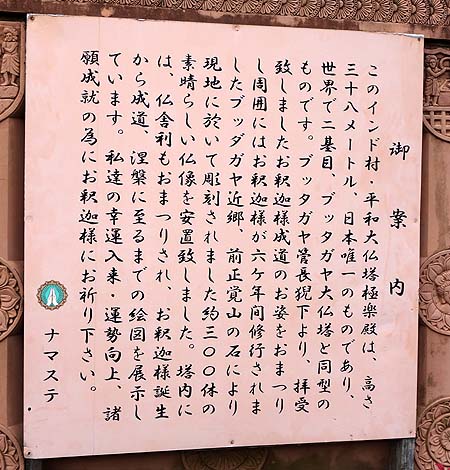 御案内
このインド村・平和大仏塔極楽殿は、高さ
三十八メートル、日本唯一のものであり、
世界で二基目、ブッダガヤ大仏塔と同型の
ものです。ブッダガヤ管長猊下より、拝受
致しましたお釈迦様成道のお姿をおまつり
し周囲にはお釈迦様が六ケ年間修行されま
したブッダガヤ近郷、前正覚山の石により
現地に於いて彫刻されました約三〇〇体の
素晴らしい仏像を安置致しました。塔内に
は、仏舎利もおまつりされ、お釈迦様誕生
から成道、涅槃に至るまでの絵図を展示し
ています。私達の幸運入来・運勢向上、諸
願成就の為にお釈迦様にお祈り下さい。
ナマステ